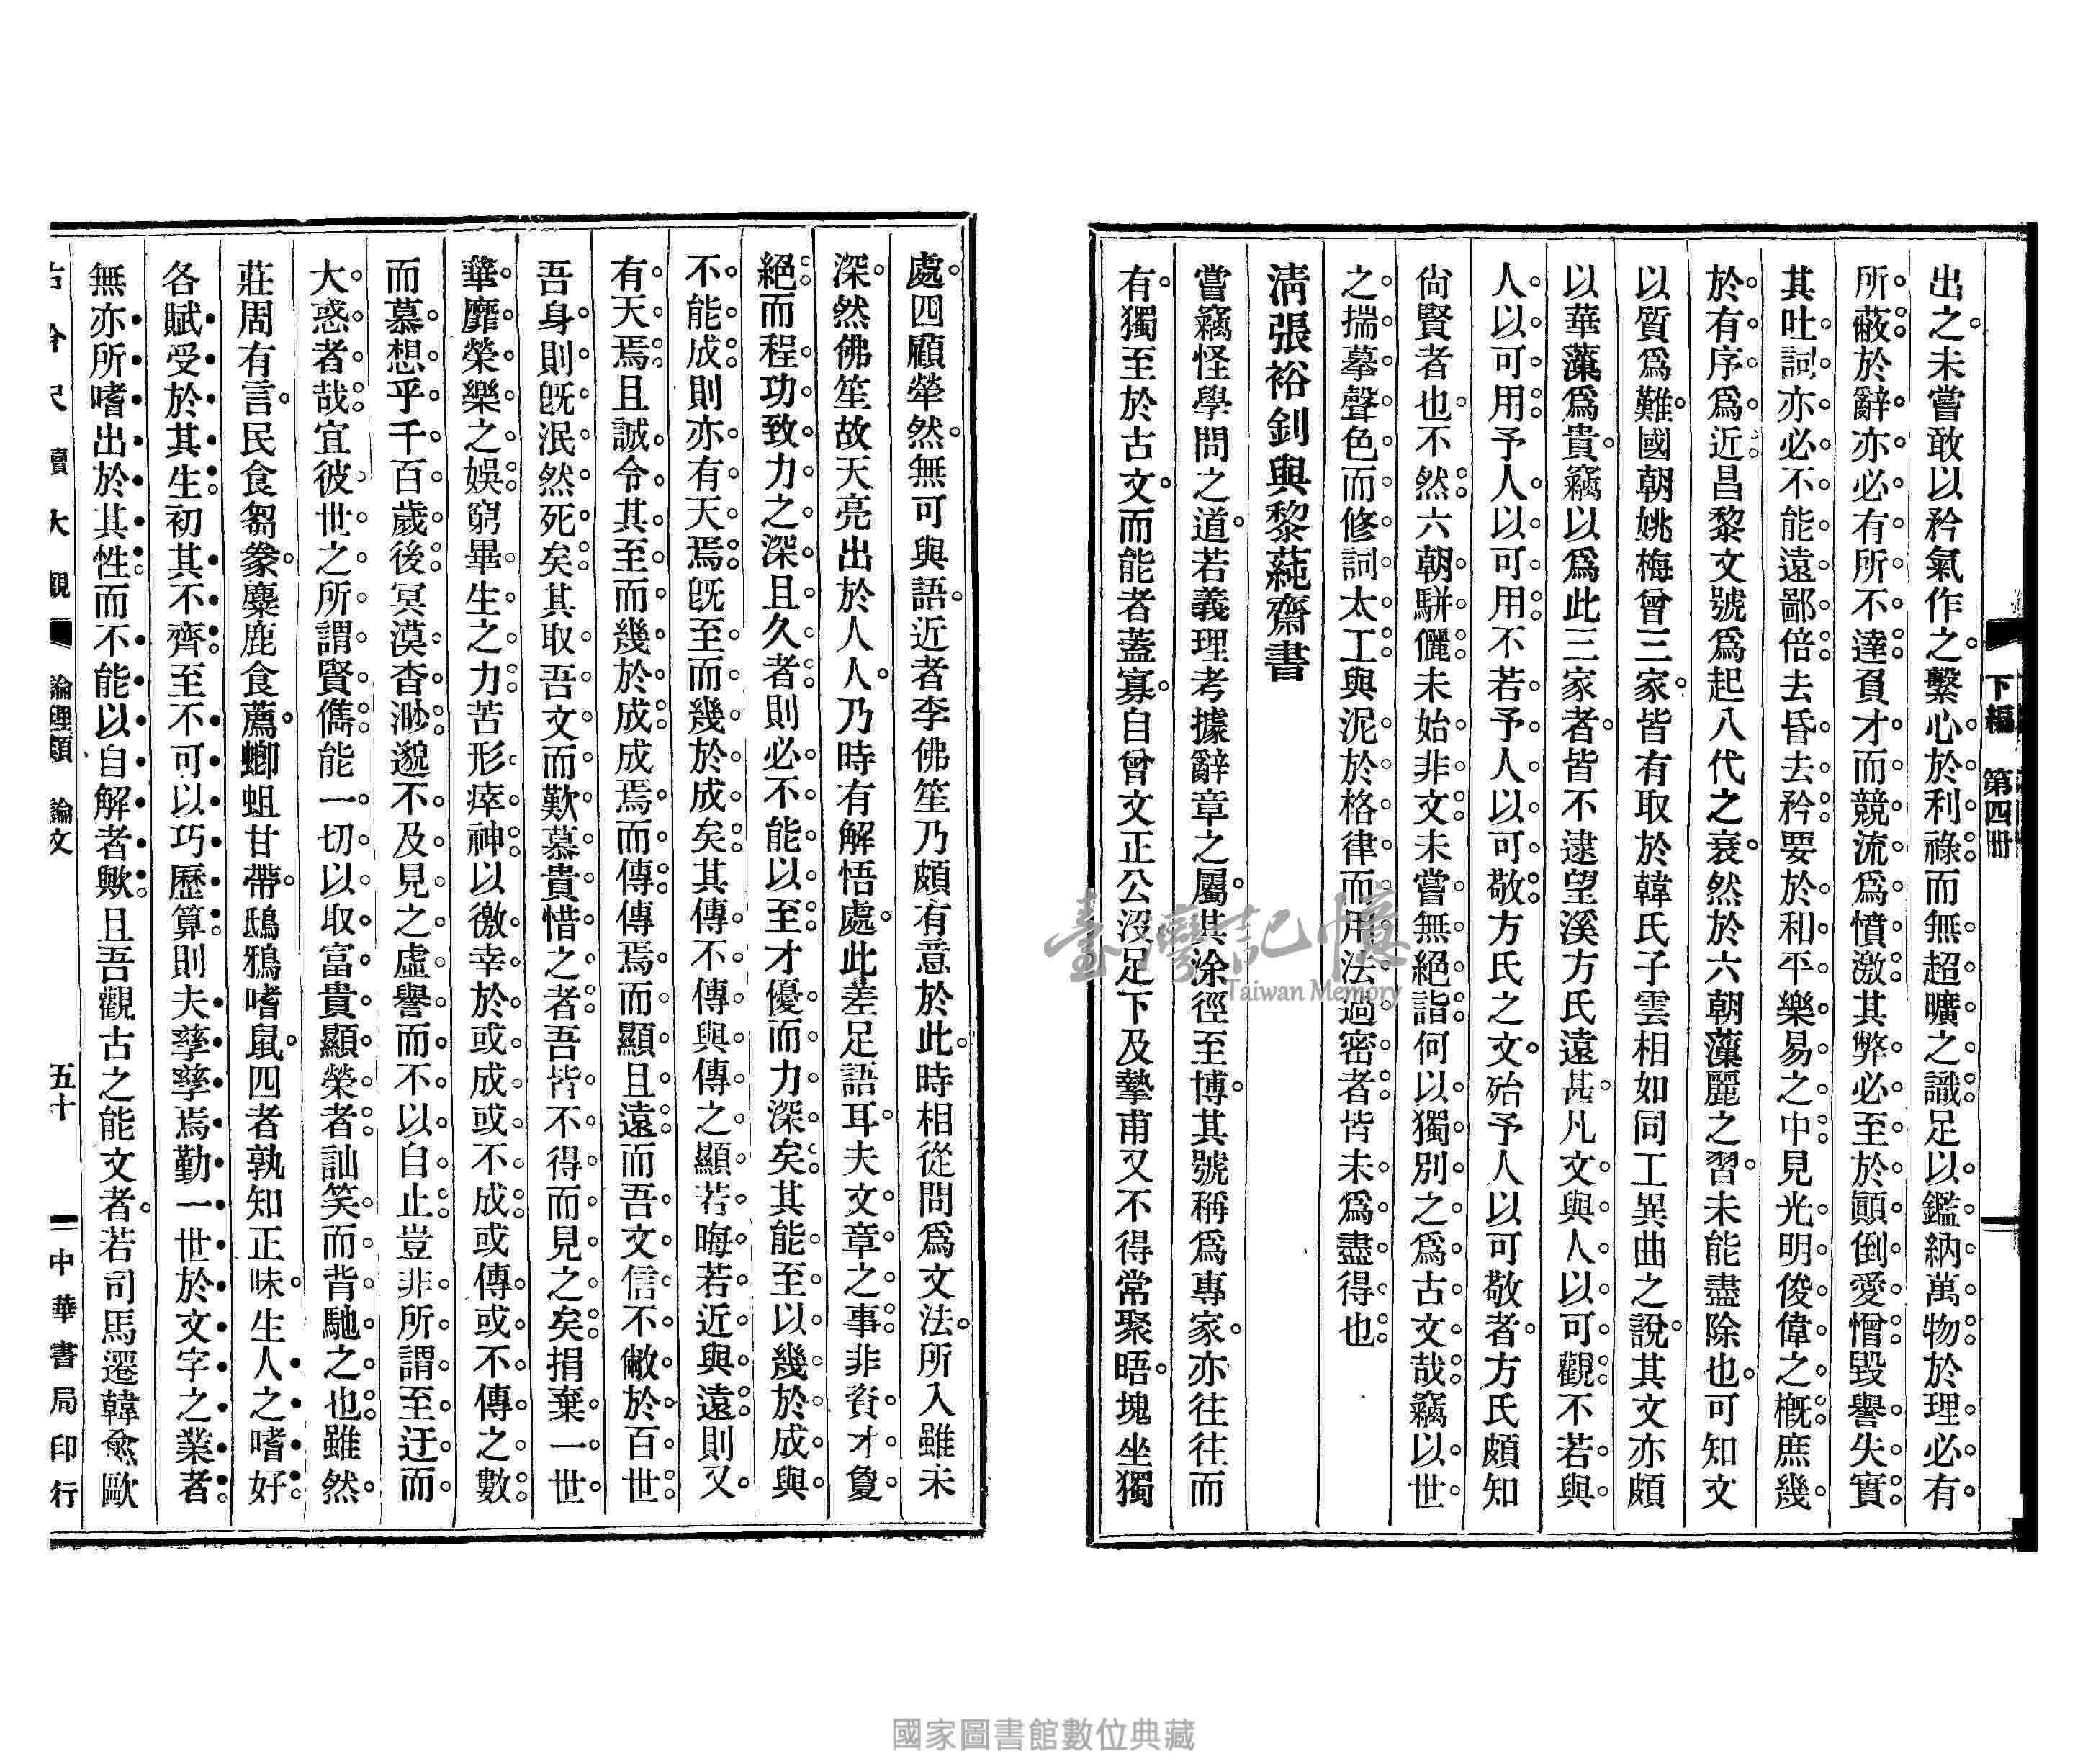 下編　第四冊
出之未嘗敢以矜氣作之繫心於利祿而無超曠之識足以鑑納萬物於理必有
所蔽於辭亦必有所不達負才而競流爲憤激其弊必至於顚倒愛憎毀譽失實
其吐詞亦必不能遠鄙倍去昏去矜要於和平樂易之中見光明俊偉之概庶幾
於有序爲近昌黎文號爲起八代之衰然於六朝藻麗之習未能盡除也可知文
以質爲難國朝姚梅曾三家皆有取於韓氏子雲相如同工異曲之說其文亦頗
以華藻爲貴竊以爲此三家者皆不逮望溪方氏遠甚凡文與人以可觀不若與
人以可用予人以可用不若予人以可敬方氏之文殆予人以可敬者方氏頗知
尙賢者也不然六朝駢儷未始非文未嘗無絕詣何以獨別之爲古文哉竊以世
之揣摹聲色而修詞太工與泥於格律而用法過密者皆未爲盡得也
淸張裕釗與黎蒓齋書
嘗竊怪學問之道若義理考據辭章之屬其涂徑至博其號稱爲專家亦往往而
有獨至於古文而能者蓋寡自曾文正公沒足下及摯甫又不得常聚晤塊坐獨
處四顧犖然無可與語近者李佛笙乃頗有意於此時相從問爲文法所入雖未
深然佛笙故天亮出於人人乃時有解悟處此差足語耳夫文章之事非資才敻
絕而程功致力之深且久者則必不能以至才優而力深矣其能至以幾於成與
不能成則亦有天焉旣至而幾於成矣其傳不傳與傳之顯若晦若近與遠則又
有天焉且誠令其至而幾於成成焉而傳傳焉而顯且遠而吾文信不敝於百世
吾身則旣泯然死矣其取吾文而歎慕貴惜之者吾皆不得而見之矣捐棄一世
華靡榮樂之娛窮畢生之力苦形瘁神以徼幸於或成或不成或傳或不傳之數
而慕想乎千百歲後冥漠杳渺邈不及見之虛譽而不以自止豈非所謂至迂而
大惑者哉宜彼世之所謂賢儁能一切以取富貴顯榮者訕笑而背馳之也雖然
莊周有言民食芻豢麋鹿食薦蝍蛆甘帶鴟鴉嗜鼠四者孰知正味生人之嗜好
各賦受於其生初其不齊至不可以巧歷算則夫孳孳焉勤一世於文字之業者
無亦所嗜出於其性而不能以自解者歟且吾觀古之能文者若司馬遷韓愈歐
古今尺牘大觀　論理類　論文　五十　中華書局印行
臺灣記憶
Taiwan Memory
國家圖書館數位典藏